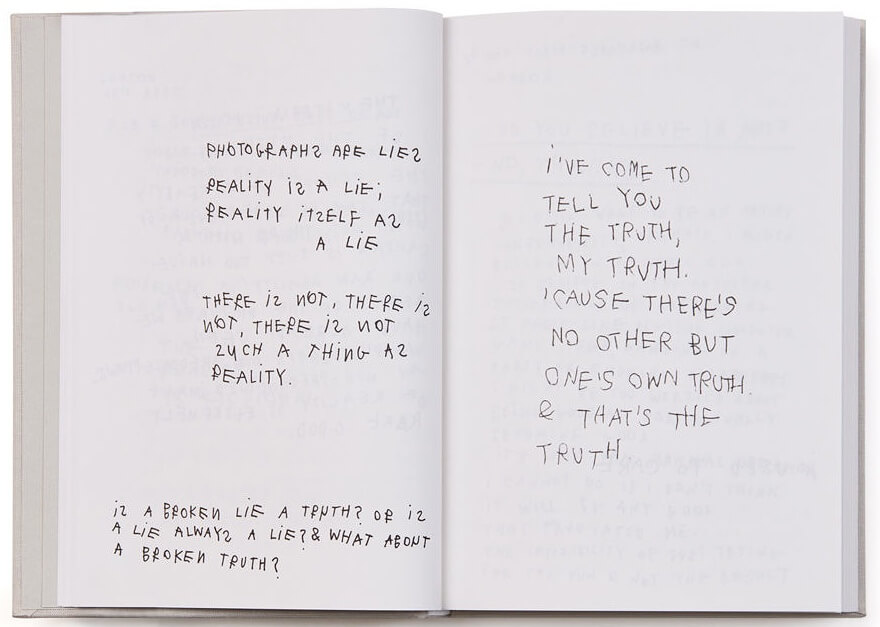 PHOTOGRAPHS ARE LiES
REALITY iS A LiE;
REALITY iTSELF AS
A LIE
THERE iS NOT, THERE iS
NOT, THERE iS NOT
SUCH A THING AS
REALITY.
iS A BROKEN LIE A TRUTH? OR iS
A LiE ALWAYS A LiE? & WHAT ABOUT
A BROKEN TRUTH?
i'VE COME TO
TELL YOU
THE TRUTH,
MY TRUTH.
'CAUSE THERE'S
NO OTHER BUT
ONE'S OWN TRUTH.
& THAT'S THE
TRUTH.